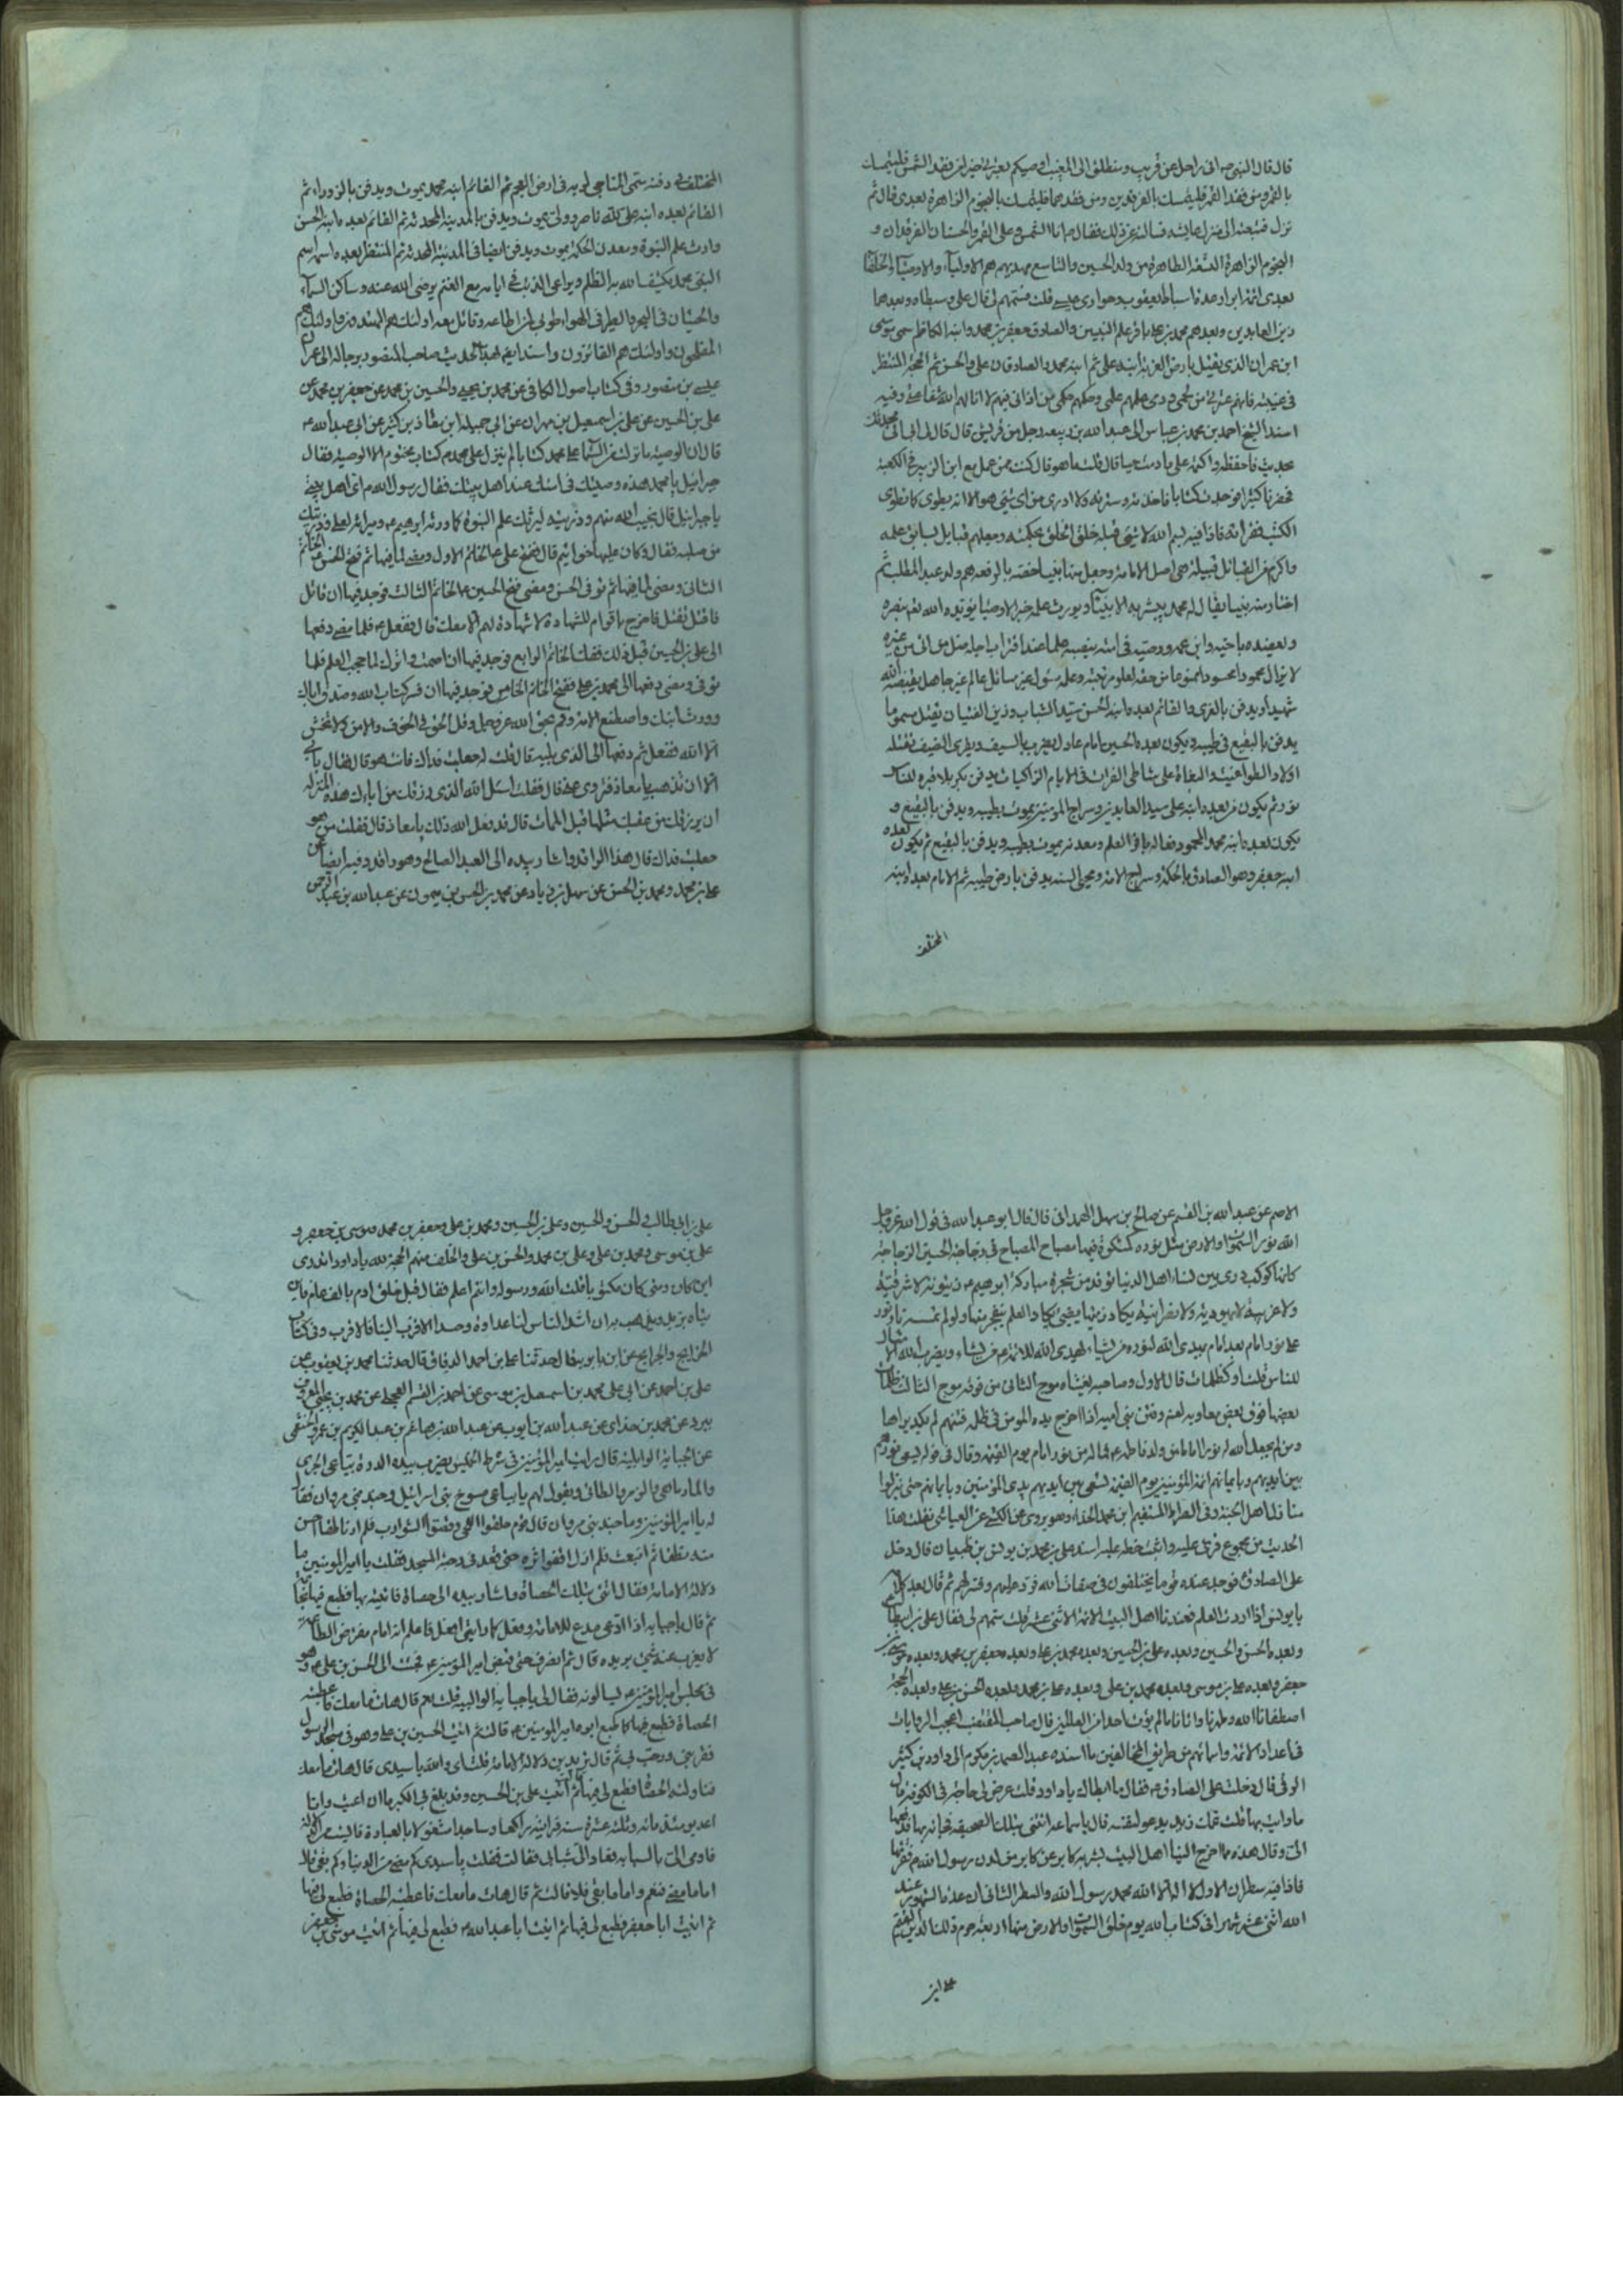 قال قال النبي ص اني راحل عن قريب ومنطلق الى المغيب اوصيكم بعترتي خيرا من فقد الشمس فليتمسك
بالقمر ومن فقد القمر فليتمسك بالفرقدين ومن فقدهما فليتمسك بالنجوم الزاهرة بعدي قال ثم
نزل فتبعته الى منزل عايشه فسالته عن ذلك فقال ص انا الشمس وعلي القمر والحسنان الفرقدان و
النجوم الزاهرة التسعة الطاهرة من ولد الحسين والتاسع مهديهم هم الاولياء والاوصياء والخلفاء
بعدي ائمة ابرار عدة اسباط يعقوب وحواري عيسى قلت سمهم لي قال علي وسبطاه وبعدهما
زين العابدين وبعدهم محمد بن علي باقر علم النبيين والصادق جعفر بن محمد وابنه الكاظم سمي موسى
ابن عمران الذي يقتل بارض الغربة ابنه علي ثم ابنه محمد والصادقان علي والحسن ثم الحجة المنتظر
في غيبته فانهم عترتي من لحمي ودمي علمهم علمي وحكمهم حكمي من اذاني فيهم لا اناله الله شفاعتي وفيه
اسند الشيخ احمد بن محمد بن عياش الى عبد الله بن ربيعه رجل من قريش قال قال لي ابي اني محدثك
بحديث فاحفظه واكتمه علي ما دمت حيا قال قلت ما هو قال كنت ممن عمل مع ابن الزبير في الكعبة
فحفرنا كثيرا فوجدت كتابا فاخذته وسترته ولا ادري من اي شيء هو الا انه يطوى كما تطوى
الكتب فقراته فاذا فيه بسم الله لا شيء قبله خلق الخلق بحكمته وجعلهم قبايل لسابق علمه
واكرم من القبائل قبيلة هي اصل الامامة وجعل منها نبيا خصه بالرفعة هم ولد عبد المطلب ثم
اختار منه نبيا يقال له محمد يبشر به الانبياء ويورث علمه خير الاوصياء يؤيده الله بنصره
ويعضده باخيه وابن عمه ووصيه في امته
لا يزال محمودا محسودا ممنوعا من حقه
شهيدا ويدفن بالغري والقائم بعده ابنه الحسن سيد الشباب وزين الفتيان يقتل مسموما
يدفن بالبقيع في طيبه ويكون بعده الحسين امام عادل يضرب بالسيف ويقري الضيف تقتله
اولاد الطواغيت والبغاة على شاطئ الفرات في الايام الزاكيات يدفن بكربلا قبره للناس
نور ثم يكون من بعده ابنه علي سيد العابدين وسراج المومنين يموت بطيبه ويدفن بالبقيع و
يكون بعده ابنه محمد المحمود فعاله باقر العلم ومعدنه يموت بطيبه ويدفن بالبقيع ثم يكون بعده
ابنه جعفر وهو الصادق بالحكمة وسراج الامة ومحيي السنة يدفن بارض طيبه ثم الامام بعده ابنه
المختلف
المختلف في دفنه سمي المناجي لربه في ارض العجم ثم القائم ابنه محمد يموت ويدفن بالزوراء ثم
القائم بعده ابنه علي لله ناصر وولي يموت ويدفن بالمدينة المحدثة ثم القائم بعده ابنه الحسن
وارث علم النبوة ومعدن الحكمة يموت ويدفن ايضا في المدينة المحدثة ثم المنتظر بعده اسمه اسم
النبي محمد يكشف الله به الظلم ويراعي الذئب في ايامه مع الغنم يرضى الله عنه وساكن السماء
والحيتان في البحر والطير في الهواء طوبى لمن اطاعه وقاتل بعد اولئك هم المهتدون واولئك هم
المفلحون واولئك هم الفائزون واسند ايضا هذا الحديث صاحب المقصود برجاله الى عمران
عيسى بن منصور وفي كتاب اصول الكافي عن محمد بن يحيى والحسين بن محمد عن جعفر بن محمد عن
علي بن الحسين عن علي بن اسمعيل بن مهران عن ابي جميله عن معاذ بن كثير عن ابي عبد الله ع
قال ان الوصيه نزلت من السما على محمد كتابا لم ينزل على محمد ص كتاب مختوم الا الوصيه فقال
جبرائيل يا محمد هذه وصيتك في امتك عند اهل بيتك فقال رسول الله ص اي اهل بيتي
يا جبرائيل قال نجيب الله منهم وذريته ليرثك علم النبوة كما ورثه ابراهيم ع وميراثه لعلي وذريتك
من صلبه فقال وكان عليها خواتيم قال ففتح علي ع الخاتم الاول ومضى لما فيها ثم فتح الحسن ع الخاتم
الثاني ومضى لما فيها ثم توفي الحسن ومضى ففتح الحسين ع الخاتم الثالث فوجد فيها ان قاتل
فاقتل وتقتل فاخرج باقوام للشهادة لا شهادة لهم الا معك قال ففعل ع فلما مضى دفعها
الى علي بن الحسين قبل ذلك ففك الخاتم الرابع فوجد فيها ان اصمت واترك لما حجب العلم فلما
توفي ومضى دفعها الى محمد بن علي ففتح الخاتم الخامس فوجد فيها ان فسر كتاب الله وصدق اباك
وورث ابنك واصطنع الامة وقم بحق الله عز وجل وقل الحق في الخوف والامن ولا تخش
الا الله ففعل ثم دفعها الى الذي يليه قال قلت له جعلت فداك فانت هو قال فقال ما بي
الا ان تذهب يا معاذ فتروي علي قال فقلت اسئل الله الذي رزقك من ابائك هذه المنزله
ان يرزقك من عقبك مثلها قبل الممات قال قد فعل الله ذلك يا معاذ قال فقلت من هو
جعلت فداك قال هذا الراقد واشار بيده الى العبد الصالح وهو راقد وفيه ايضا عن
علي بن محمد ومحمد بن الحسن عن سهل بن زياد عن محمد بن الحسن بن ميمون عن عبد الله بن عبد الرحمن
الاصم عن عبد الله بن القسم عن صالح بن سهل الهمداني قال قال ابو عبد الله في قول الله عز وجل
الله نور السموات والارض مثل نوره كمشكوة فيها مصباح المصباح في زجاجة الحسين الزجاجة
كانها كوكب دري بين نساء اهل الدنيا توقد من شجرة مباركة ابراهيم ع زيتونة لا شرقية
ولا غربية لا يهودية ولا نصرانية يكاد زيتها يضيء يكاد العلم ينفجر منها ولو لم تمسسه نار نور
على نور امام بعد امام يهدي الله لنوره من يشاء يهدي الله للائمة ع من يشاء ويضرب الله الامثال
للناس قلت او كظلمات قال الاول وصاحبه يغشاه موج الثاني من فوقه موج الثالث ظلمات
بعضها فوق بعض معاويه لعنه وفتن بني اميه اذا اخرج يده المومن في ظلمة فتنهم لم يكد يراها
ومن لم يجعل الله له نورا اماما من ولد فاطمه ع فما له من نور امام يوم القيمة وقال في قوله يسعى نورهم
بين ايديهم وبايمانهم ائمة المؤمنين يوم القيمة تسعى بين ايديهم يدي المؤمنين وبايمانهم حتى ينزلوا
منازل اهل الجنة وفي الصراط المستقيم
الحديث من مجموع قرئ عليه واثبت خطه عليه اسنده علي بن محمد بن يونس بن ظبيان قال دخل
على الصادق فوجد عنده قوما يختلفون في صفات الله فرد عليهم ثم قال بعد كلام
يا يونس اذا اردت العلم فعندنا اهل البيت الائمة الاثني عشر قلت سمهم لي فقال علي بن ابيطالب
وبعده الحسن والحسين وبعده علي بن الحسين وبعده محمد بن علي وبعده جعفر بن محمد وبعده موسى بن
جعفر وبعده علي بن موسى وبعده محمد بن علي وبعده علي بن محمد وبعده الحسن بن علي وبعده الحجة
اصطفانا الله وطهرنا واتانا ما لم يؤت احدا من العالمين قال صاحب المقتضب اعجب الروايات
في اعداد الائمة واسمائهم من طريق المخالفين ما اسنده عبد الصمد بن مكرم الى داود بن كثير
الرقي قال دخلت على الصادق ع فقال ما ابطاك يا داود قلت عرض لي حاجة في الكوفة قال
ما رايت بها قلت عمك زيد يدعو لنفسه قال يا سماعه ائتني بتلك الصحيفة فجائه بها فدفعها
الي وقال هذه مما اخرج الينا اهل البيت يرثه كابر عن كابر من لدن رسول الله ص فقراتها
فاذا فيه سطران الاول لا اله الا الله محمد رسول الله والسطر الثاني ان عدة الشهور عند
الله اثني عشر شهرا في كتاب الله يوم خلق السموات والارض منها اربعة حرم ذلك الدين القيم
علي بن
علي بن ابي طالب والحسن والحسين وعلي بن الحسين ومحمد بن علي وجعفر بن محمد وموسى بن جعفر و
علي بن موسى ومحمد بن علي وعلي بن محمد والحسن بن علي والخلف منهم الحجة لله يا داود اتدري
اين كان ومتى كان مكتوبا قلت الله ورسوله وانتم اعلم فقال قبل خلق ادم بالف عام فاين
يتاه بزيد ويذهب به ان اشد الناس لنا عداوة وحسدا الاقرب الينا فالاقرب وفي كتاب
الخرائج والجرايح عن ابن بابويه قال حدثنا علي بن احمد الدقاق قال حدثنا محمد بن يعقوب عن
علي بن محمد عن ابي علي محمد بن اسمعيل بن موسى عن احمد بن القسم العجلي عن محمد بن يحيى المعروف
ببرد عن محمد بن خداي عن عبد الله بن ايوب عن عبد الله بن هاشم بن عبد الكريم بن عمرو الخثعمي
عن حبابة الوالبية قال رايت امير المؤمنين في شرط الخميس يضرب بيده الدرة بياعي الجري
والمارماهي والزمر والطافي ويقول لهم يا بياعي مسوخ بني اسرائيل وجند بني مروان فقال
له يا امير المؤمنين وما جند بني مروان قال قوم حلقوا اللحى وفتلوا الشوارب فلم ار ناطقا احسن
منه نطقا ثم اتبعته فلم ازل اقفو اثره حتى قعد في رحبة المسجد فقلت يا امير المومنين ما
دلالة الامامة فقال ائتني بتلك الحصاة واشار بيده الى حصاة فاتيته بها فطبع فيها بخاتمه
ثم قال يا حبابه اذا ادعى مدع للامامة وفعل كما رايتي افعل فاعلم انه امام مفترض الطاعة
لا يعزب عنه شيء يريده قال ثم انصرفت حتى قبض امير المؤمنين ع فجئت الى الحسن بن علي ع وهو
في مجلس امير المؤمنين ع يسالونه فقال لي يا حبابة الوالبيه قلت نعم قال هات ما معك فاعطيته
الحصاة فطبع فيها كما طبع ابوه امير المومنين ع قالت ثم اتيت الحسين بن علي وهو في مسجد الرسول
فقربني ورحب بي ثم قال تريدين دلالة الامامة قلت اي والله يا سيدي قال هات ما معك
فناولته الحصاة فطبع لي فيها ثم اتيت علي بن الحسين وقد بلغ بي الكبر ما ان اعييت وانا
اعد يومئذ مائة وثلثة عشرة سنة فرايته راكعا وساجدا مشغولا بالعبادة فايست من الدلالة
فاومى الي بالسبابه فعاد الي شبابي فقالت فقلت يا سيدي كم مضى من الدنيا وكم بقي قال
اما ما مضى فنعم واما ما بقي فلا قالت ثم قال هات ما معك فاعطيته الحصاة فطبع لي فيها
ثم اتيت ابا جعفر فطبع لي فيها ثم اتيت ابا عبد الله ع فطبع لي فيها ثم اتيت موسى بن جعفر